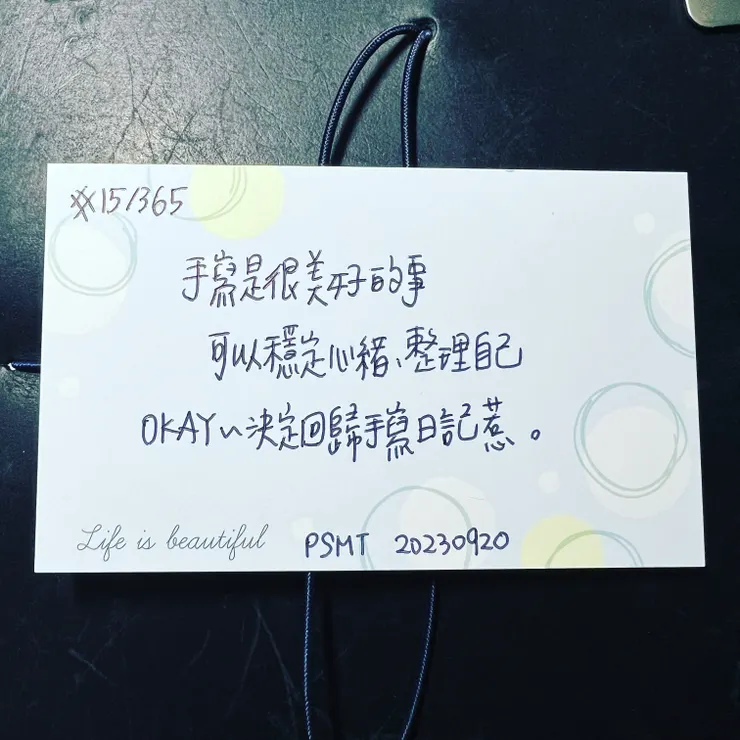 #15/365
手寫是很美好的事
可以穩定心緒、整理自己
OKAY~決定回歸手寫日記惹。
Life is beautiful
PSMT 20230920